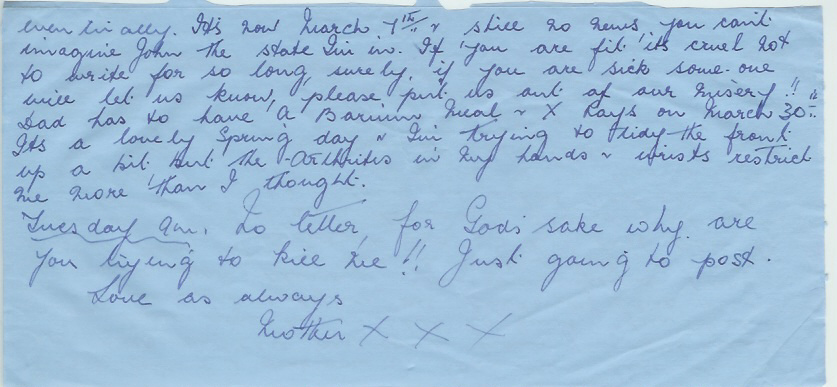 eventually. It's now March 7th & still no news, you can't
imagine John the state I'm in. If you are fit it's cruel not
to write for so long, surely, if you are sick some-one
will let us know, please put us out of our misery!!
Dad has to have a Barium Meal & X Rays on March 30th
Its a lovely Spring day & I'm trying to tidy the front
up a bit but the Arthritis in my hands & wrists restrict
me more than I thought.
Tuesday am. No letter, for God's sake why are
you trying to kill me!! Just going to post.
Love as always
Mother X X X